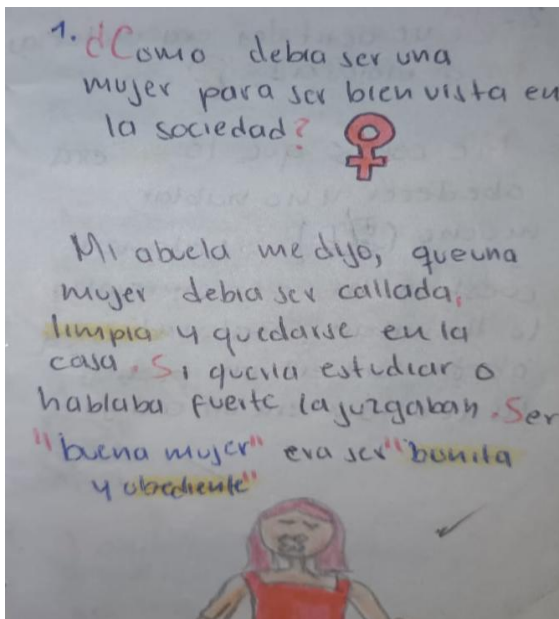 1. ¿Como debia ser una
mujer para ser bien vista en
la sociedad?
Mi abuela me dijo, que una
mujer debia ser callada,
limpia y quedarse en la
casa. Si queria estudiar o
hablaba fuerte la juzgaban. Ser
"buena mujer" era ser "bonita
y obediente"